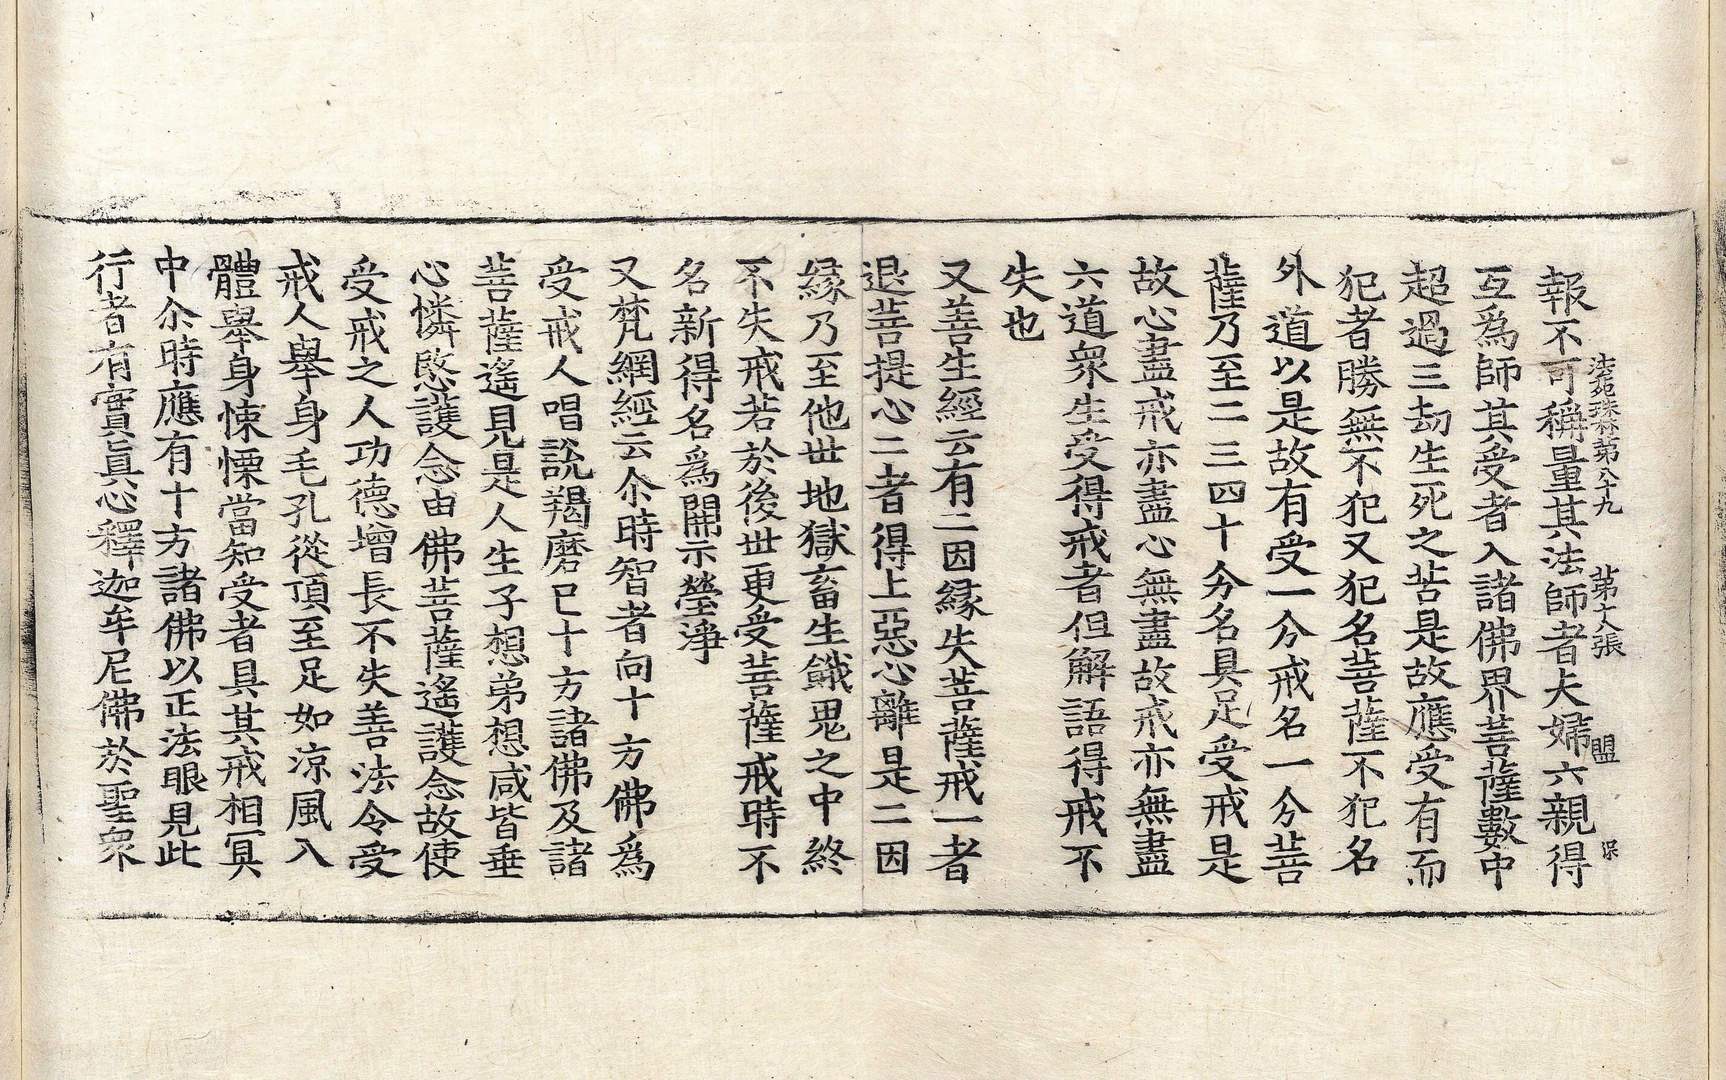 法苑珠林第八十九　第十八張　盟　保
報不可稱量其法師者夫婦六親得
互爲師其受者入諸佛界菩薩數中
超過三劫生死之苦是故應受有而
犯者勝無不犯又犯名菩薩不犯名
外道以是故有受一分戒名一分菩
薩乃至二三四十分名具足受戒是
故心盡戒亦盡心無盡故戒亦無盡
六道衆生受得戒者但解語得戒不
失也
又善生經云有二因緣失菩薩戒一者
退菩提心二者得上惡心離是二因
緣乃至他世地獄畜生餓鬼之中終
不失戒若於後世更受菩薩戒時不
名新得名爲開示瑩淨
又梵網經云尒時智者向十方佛爲
受戒人唱說羯磨已十方諸佛及諸
菩薩遙見是人生子想弟想咸皆垂
心憐愍護念由佛菩薩遙護念故使
受戒之人功德增長不失善法令受
戒人舉身毛孔從頂至足如涼風入
體舉身悚慄當知受者具其戒相冥
中尒時應有十方諸佛以正法眼見此
行者有實眞心釋迦牟尼佛於聖衆